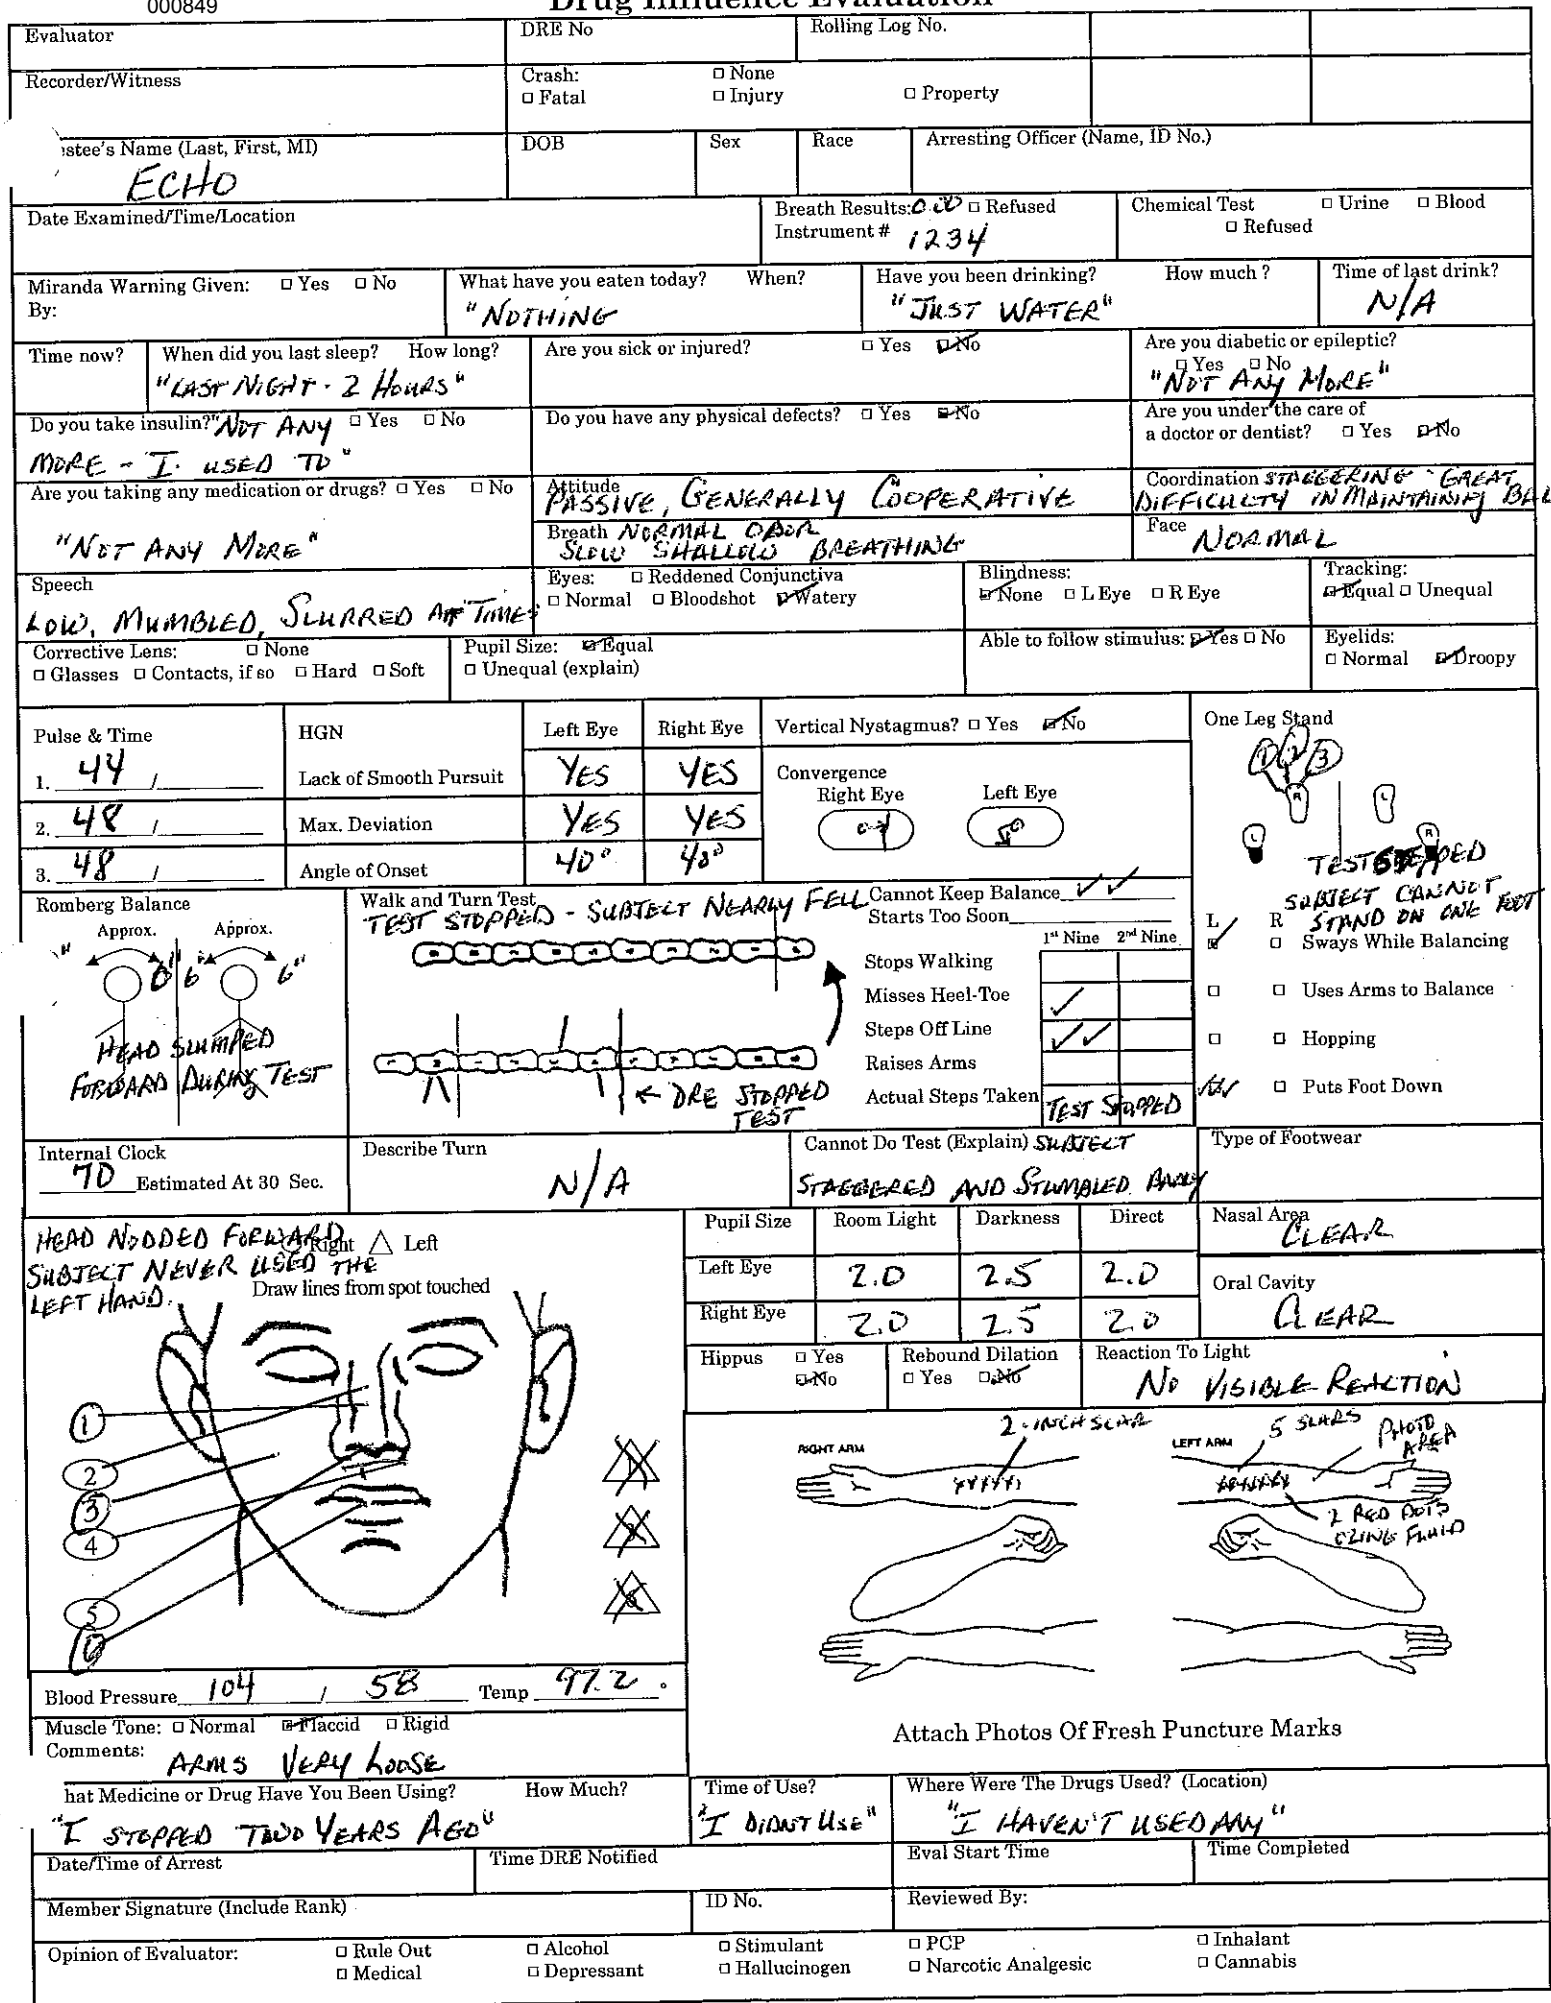 000849
Drug Influence Evaluation
Evaluator
DRE No
Rolling Log No.
Recorder/Witness
Crash: □ None
□ Fatal □ Injury □ Property
stee's Name (Last, First, MI)
ECHO
DOB
Sex
Race
Arresting Officer (Name, ID No.)
Date Examined/Time/Location
Breath Results: 0.00 □ Refused
Instrument # 1234
Chemical Test □ Urine □ Blood
□ Refused
Miranda Warning Given: □ Yes □ No
By:
What have you eaten today? When?
"NOTHING
Have you been drinking? How much ?
"JUST WATER"
Time of last drink?
N/A
Time now?
When did you last sleep? How long?
"LAST NIGHT - 2 HOURS"
Are you sick or injured? □ Yes ☑ No
Are you diabetic or epileptic?
□ Yes □ No
"NOT ANY MORE"
Do you take insulin? "NOT ANY □ Yes □ No
MORE - I USED TO"
Do you have any physical defects? □ Yes ☑ No
Are you under the care of
a doctor or dentist? □ Yes ☑ No
Are you taking any medication or drugs? □ Yes □ No
"NOT ANY MORE"
Attitude
PASSIVE, GENERALLY COOPERATIVE
Coordination STAGGERING - GREAT
DIFFICULTY IN MAINTAINING BAL
Breath NORMAL ODOR
SLOW SHALLOW BREATHING
Face
NORMAL
Speech
LOW, MUMBLED, SLURRED AT TIMES
Eyes: □ Reddened Conjunctiva
□ Normal □ Bloodshot ☑ Watery
Blindness:
☑ None □ L Eye □ R Eye
Tracking:
☑ Equal □ Unequal
Corrective Lens: □ None
□ Glasses □ Contacts, if so □ Hard □ Soft
Pupil Size: ☑ Equal
□ Unequal (explain)
Able to follow stimulus: ☑ Yes □ No
Eyelids:
□ Normal ☑ Droopy
Pulse & Time
1. 44 /
2. 48 /
3. 48 /
HGN Left Eye Right Eye
Lack of Smooth Pursuit YES YES
Max. Deviation YES YES
Angle of Onset 40° 40°
Vertical Nystagmus? □ Yes ☑ No
Convergence
Right Eye Left Eye
One Leg Stand
1 2 3
R L
L R
TEST STOPPED
SUBJECT CANNOT
STAND ON ONE FOOT
L R
☑ □ Sways While Balancing
□ □ Uses Arms to Balance
□ □ Hopping
□ Puts Foot Down
Romberg Balance
Approx. Approx.
0" 6" 6"
HEAD SLUMPED
FORWARD DURING TEST
Walk and Turn Test
TEST STOPPED - SUBJECT NEARLY FELL
← DRE STOPPED
TEST
Cannot Keep Balance ✓✓
Starts Too Soon
1st Nine 2nd Nine
Stops Walking
Misses Heel-Toe ✓
Steps Off Line ✓✓
Raises Arms
Actual Steps Taken TEST STOPPED
Internal Clock
70 Estimated At 30 Sec.
Describe Turn
N/A
Cannot Do Test (Explain) SUBJECT
STAGGERED AND STUMBLED
Type of Footwear
HEAD NODDED FORWARD
SUBJECT NEVER USED THE
LEFT HAND.
Right △ Left
Draw lines from spot touched
1
2
3
4
5
6
Pupil Size Room Light Darkness Direct
Left Eye 2.0 2.5 2.0
Right Eye 2.0 2.5 2.0
Nasal Area
CLEAR
Oral Cavity
CLEAR
Hippus □ Yes
☑ No
Rebound Dilation
□ Yes ☑ No
Reaction To Light
NO VISIBLE REACTION
RIGHT ARM
2-INCH SCAR
LEFT ARM
5 SCARS
PHOTO
AREA
2 RED DOTS
OZING FLUID
Attach Photos Of Fresh Puncture Marks
Blood Pressure 104 / 58 Temp 97.2
Muscle Tone: □ Normal ☑ Flaccid □ Rigid
Comments:
ARMS VERY LOOSE
hat Medicine or Drug Have You Been Using? How Much?
"I STOPPED TWO YEARS AGO"
Time of Use?
"I DIDNT USE"
Where Were The Drugs Used? (Location)
"I HAVEN'T USED ANY"
Date/Time of Arrest
Time DRE Notified
Eval Start Time
Time Completed
Member Signature (Include Rank)
ID No.
Reviewed By:
Opinion of Evaluator:
□ Rule Out □ Alcohol □ Stimulant □ PCP □ Inhalant
□ Medical □ Depressant □ Hallucinogen □ Narcotic Analgesic □ Cannabis